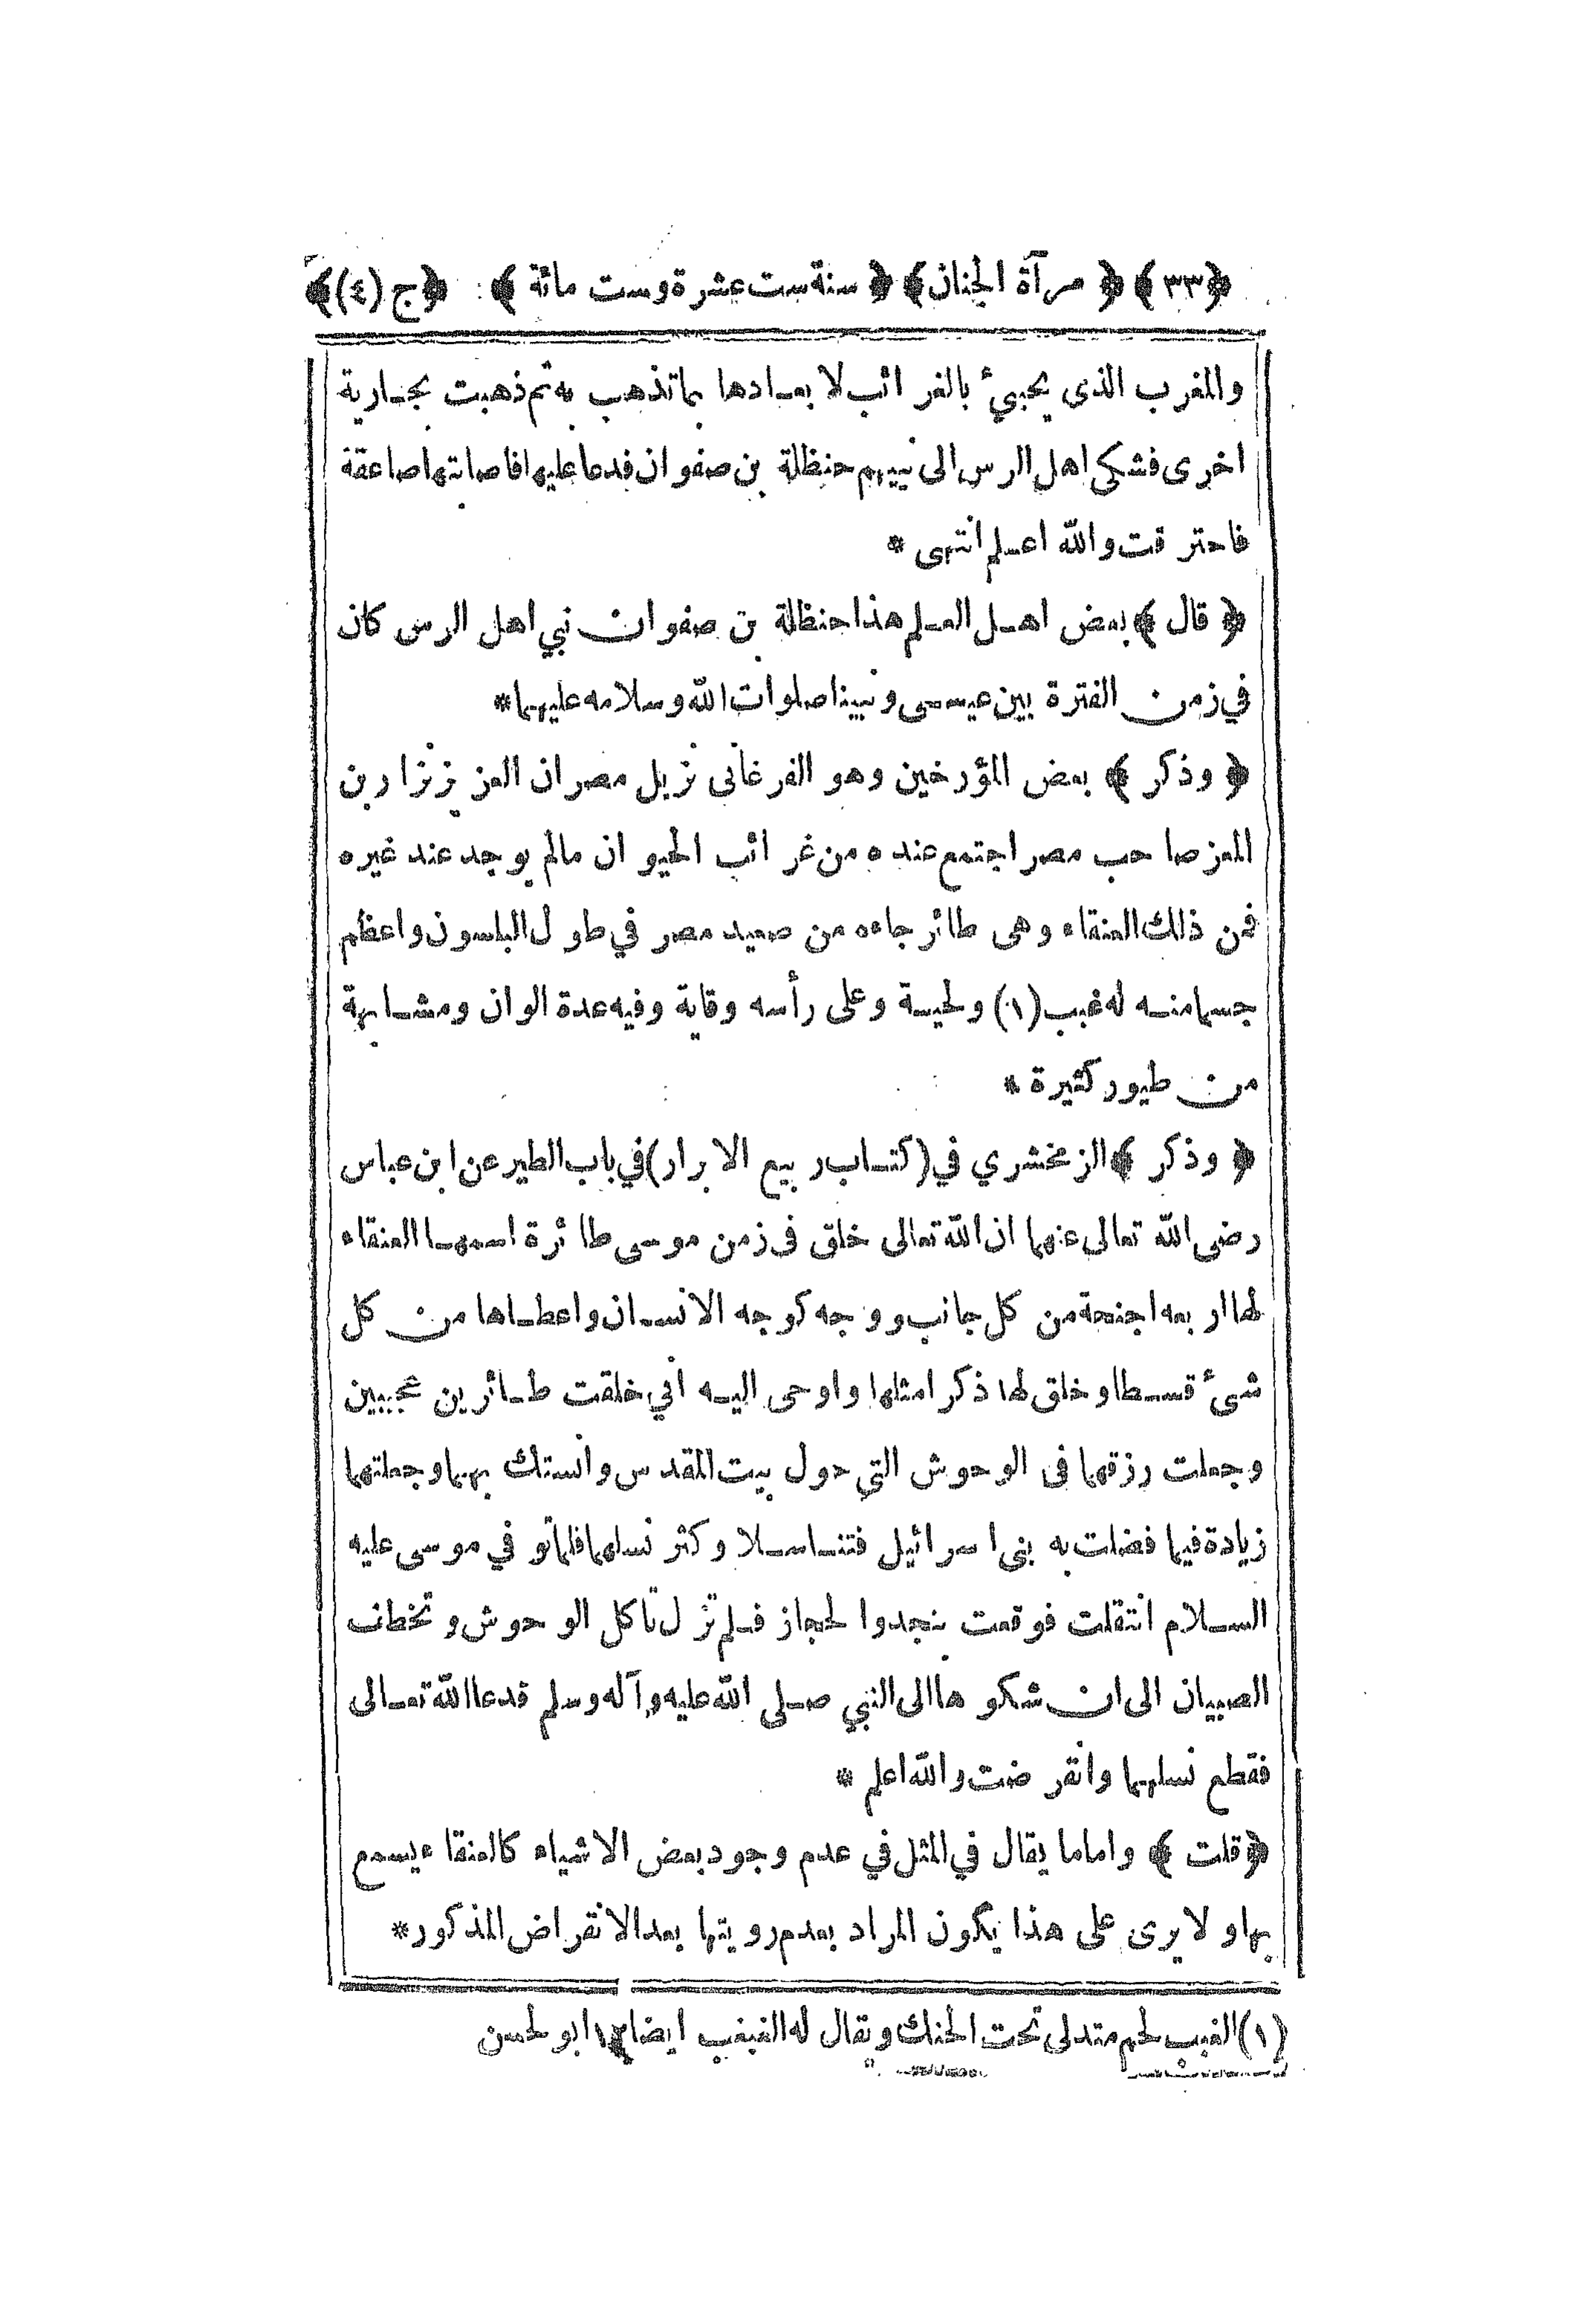 ﴿٣٣﴾ ﴿مرآة الجنان﴾ ﴿سنة ست عشرة وست مائة﴾ ﴿ج (٤)﴾
والمغرب الذى يجيئ بالغرائب لا بعادها بما تذهب به ثم ذهبت بجارية
اخرى فشكى اهل الرس الى نبيهم حنظلة بن صفوان فدعا عليها فاصابتها صاعقة
فاحترقت والله اعلم انتهى *
﴿قال﴾ بعض اهل العلم هذا حنظلة بن صفوان نبي اهل الرس كان
في زمن الفترة بين عيسى ونبينا صلوات الله وسلامه عليهما *
﴿وذكر﴾ بعض المؤرخين وهو الفرغانى نزيل مصر ان العزيز نزار بن
المعز صاحب مصر اجتمع عنده من غرائب الحيوان مالم يوجد عند غيره
فمن ذلك العنقاء وهى طائر جاءه من صعيد مصر في طول البلسون واعظم
جسما منه له غبب (١) ولحية وعلى رأسه وقاية وفيه عدة الوان ومشابهة
من طيور كثيرة *
﴿وذكر﴾ الزمخشري في (كتاب ربيع الابرار) في باب الطير عن ابن عباس
رضى الله تعالى عنهما ان الله تعالى خلق فى زمن موسى طائرة اسمها العنقاء
لها اربعه اجنحة من كل جانب ووجه كوجه الانسان واعطاها من كل
شىء قسطا وخلق لها ذكرا مثلها واوحى اليه انى خلقت طائرين عجيبين
وجعلت رزقهما فى الوحوش التي حول بيت المقدس وانستك بهما وجعلتهما
زيادة فيما فضلت به بنى اسرائيل فتناسلا وكثر نسلهما فلما توفي موسى عليه
السلام انتقلت فوقعت بنجد والحجاز فلم تزل تاكل الوحوش وتخطف
الصبيان الى ان شكوها الى النبي صلى الله عليه وآله وسلم فدعا الله تعالى
فقطع نسلهما وانقرضت والله اعلم *
﴿قلت﴾ واما ما يقال في المثل في عدم وجود بعض الاشياء كالعنقاء يسمع
بها ولا يرى على هذا يكون المراد بعدم رويتها بعد الانقراض المذكور *
(١) الغبب لحم متدلى تحت الحنك ويقال له الغبغب ايضا ١٢ ابو لحسن